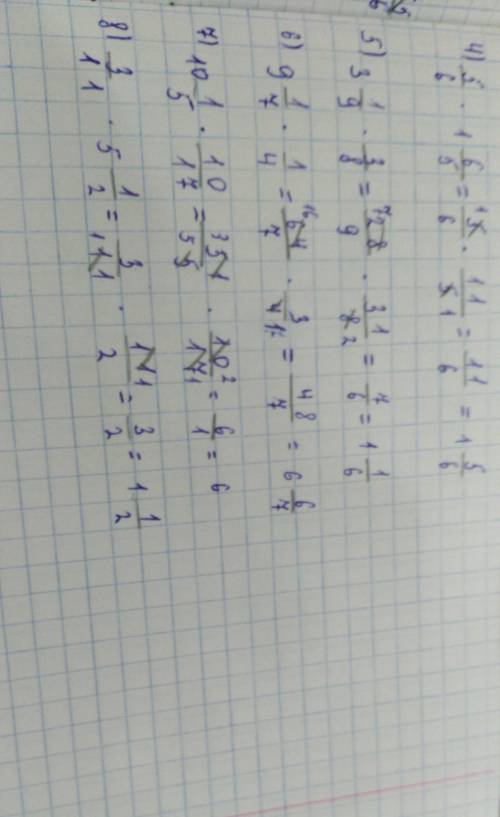 4) 5/6 · 1 6/5 = 15/6 · 11/51 = 11/6 = 1 5/6
5) 3 1/9 · 3/8 = 728/9 · 31/82 = 7/6 = 1 1/6
6) 9 1/7 · 1/4 = 1664/7 · 3/41 = 48/7 = 6 6/7
7) 10 1/5 · 10/17 = 351/55 · 102/171 = 6/1 = 6
8) 3/11 · 5 1/2 = 3/111 · 111/2 = 3/2 = 1 1/2